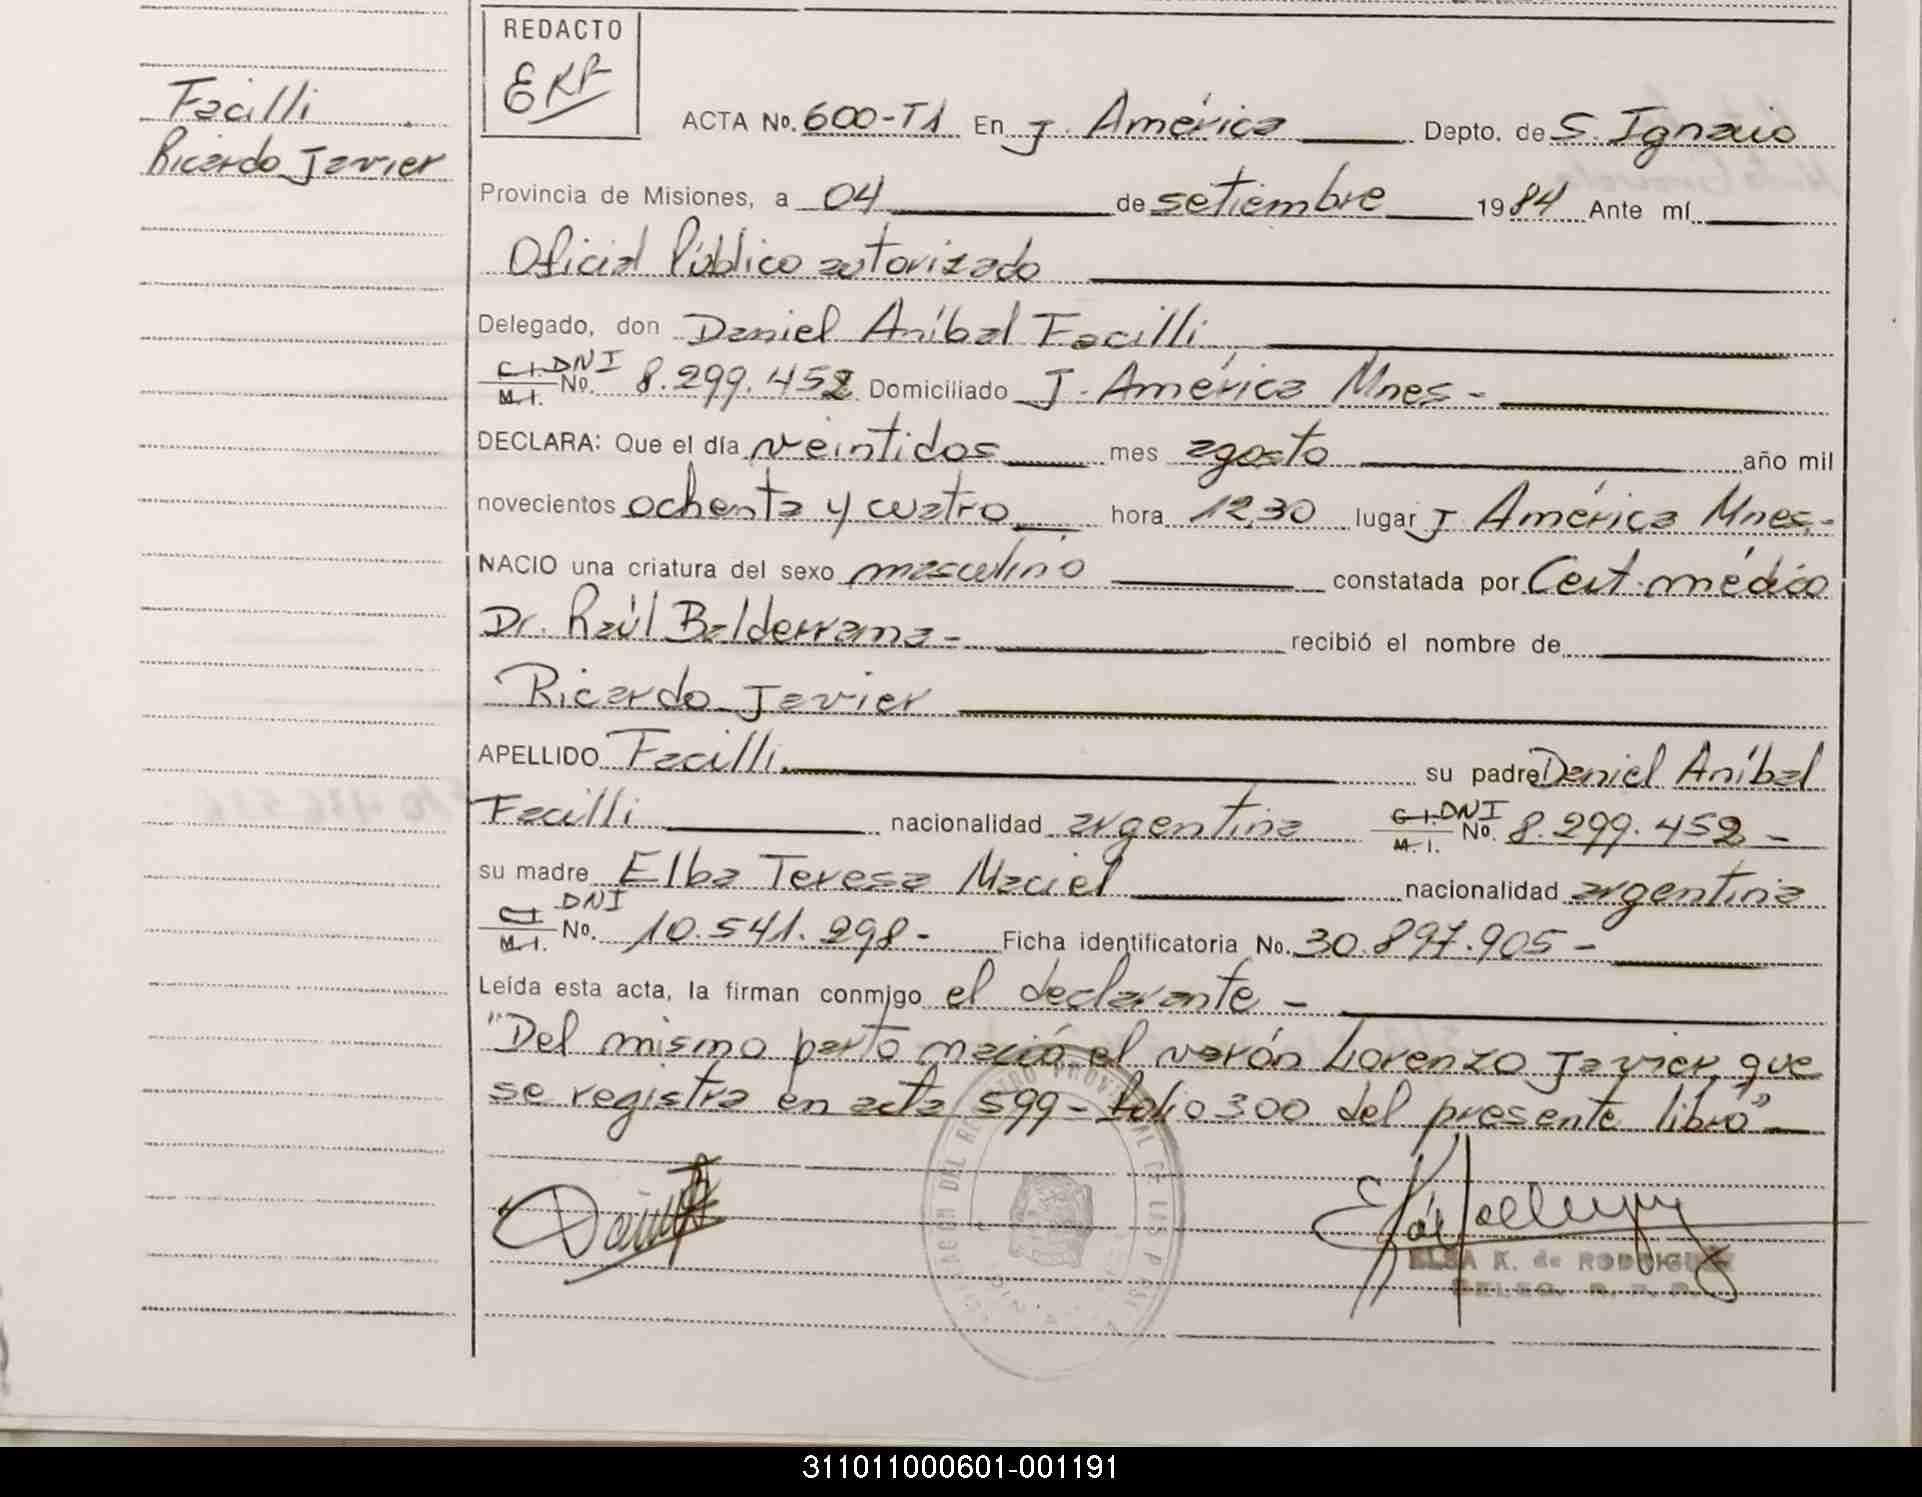 REDACTO
EKR
Facilli
Ricardo Javier
ACTA No. 600-T1 En J. América Depto. de S. Ignacio
Provincia de Misiones, a 04 de setiembre 1984 Ante mí
Oficial Público autorizado
Delegado, don Daniel Aníbal Facilli
C.I. DNI
M.I. No. 8.299.452 Domiciliado J. América Mnes-
DECLARA: Que el día veintidos mes agosto año mil
novecientos ochenta y cuatro hora 12,30 lugar J. América Mnes.-
NACIO una criatura del sexo masculino constatada por Cert. médico
Dr. Raúl Balderrama- recibió el nombre de
Ricardo Javier
APELLIDO Facilli su padre Daniel Aníbal
Facilli nacionalidad argentina C.I. DNI M.I. No. 8.299.452-
su madre Elba Teresa Maciel nacionalidad argentina
C.I. DNI
M.I. No. 10.541.298- Ficha identificatoria No. 30.897.905-
Leída esta acta, la firman conmigo el declarante-
"Del mismo parto nació el varón Lorenzo Javier que
se registra en acta 599- folio 300 del presente libro"-
ELSA K. de RODRIGUEZ
311011000601-001191